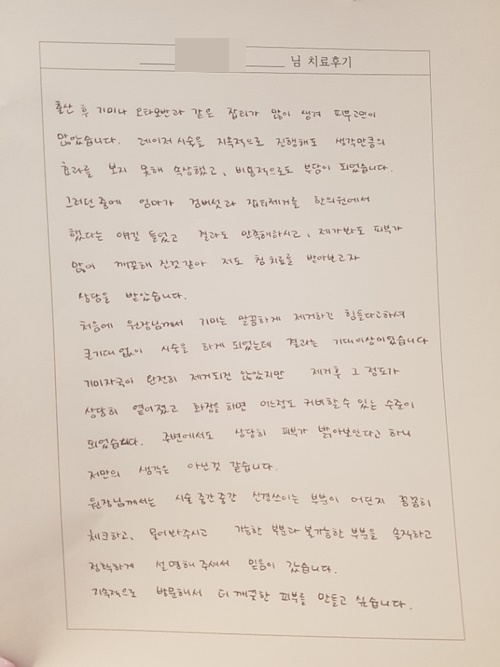 님 치료후기
출산 후 기미나 오타모반과 같은 잡티가 많이 생겨 피부고민이
많았습니다. 레이저 시술을 지속적으로 진행해도 생각만큼의
효과를 보지 못해 속상했고, 비용적으로도 부담이 되었습니다.
그러던 중에 엄마가 검버섯과 잡티제거를 한의원에서
했다는 얘길 들었고 결과도 만족해하시고, 제가봐도 피부가
많이 깨끗해 진것같아 저도 침치료를 받아보고자
상담을 받았습니다.
처음에 원장님께서 기미는 말끔하게 제거하긴 힘들다고하셔
큰기대없이 시술을 하게 되었는데 결과는 기대이상이었습니다
기미자국이 완전히 제거되진 않았지만 제거후 그 정도가
상당히 옅어졌고 화장을 하면 어느정도 커버할수 있는 수준이
되었습니다. 주변에서도 상당히 피부가 밝아보인다고 하니
저만의 생각은 아닌것 같습니다.
원장님께서는 시술 중간중간 신경쓰이는 부분이 어딘지 꼼꼼히
체크하고, 물어봐주시고 가능한 부분과 불가능한 부분을 솔직하고
정확하게 설명해 주셔서 믿음이 갔습니다.
지속적으로 방문해서 더 깨끗한 피부를 만들고 싶습니다.